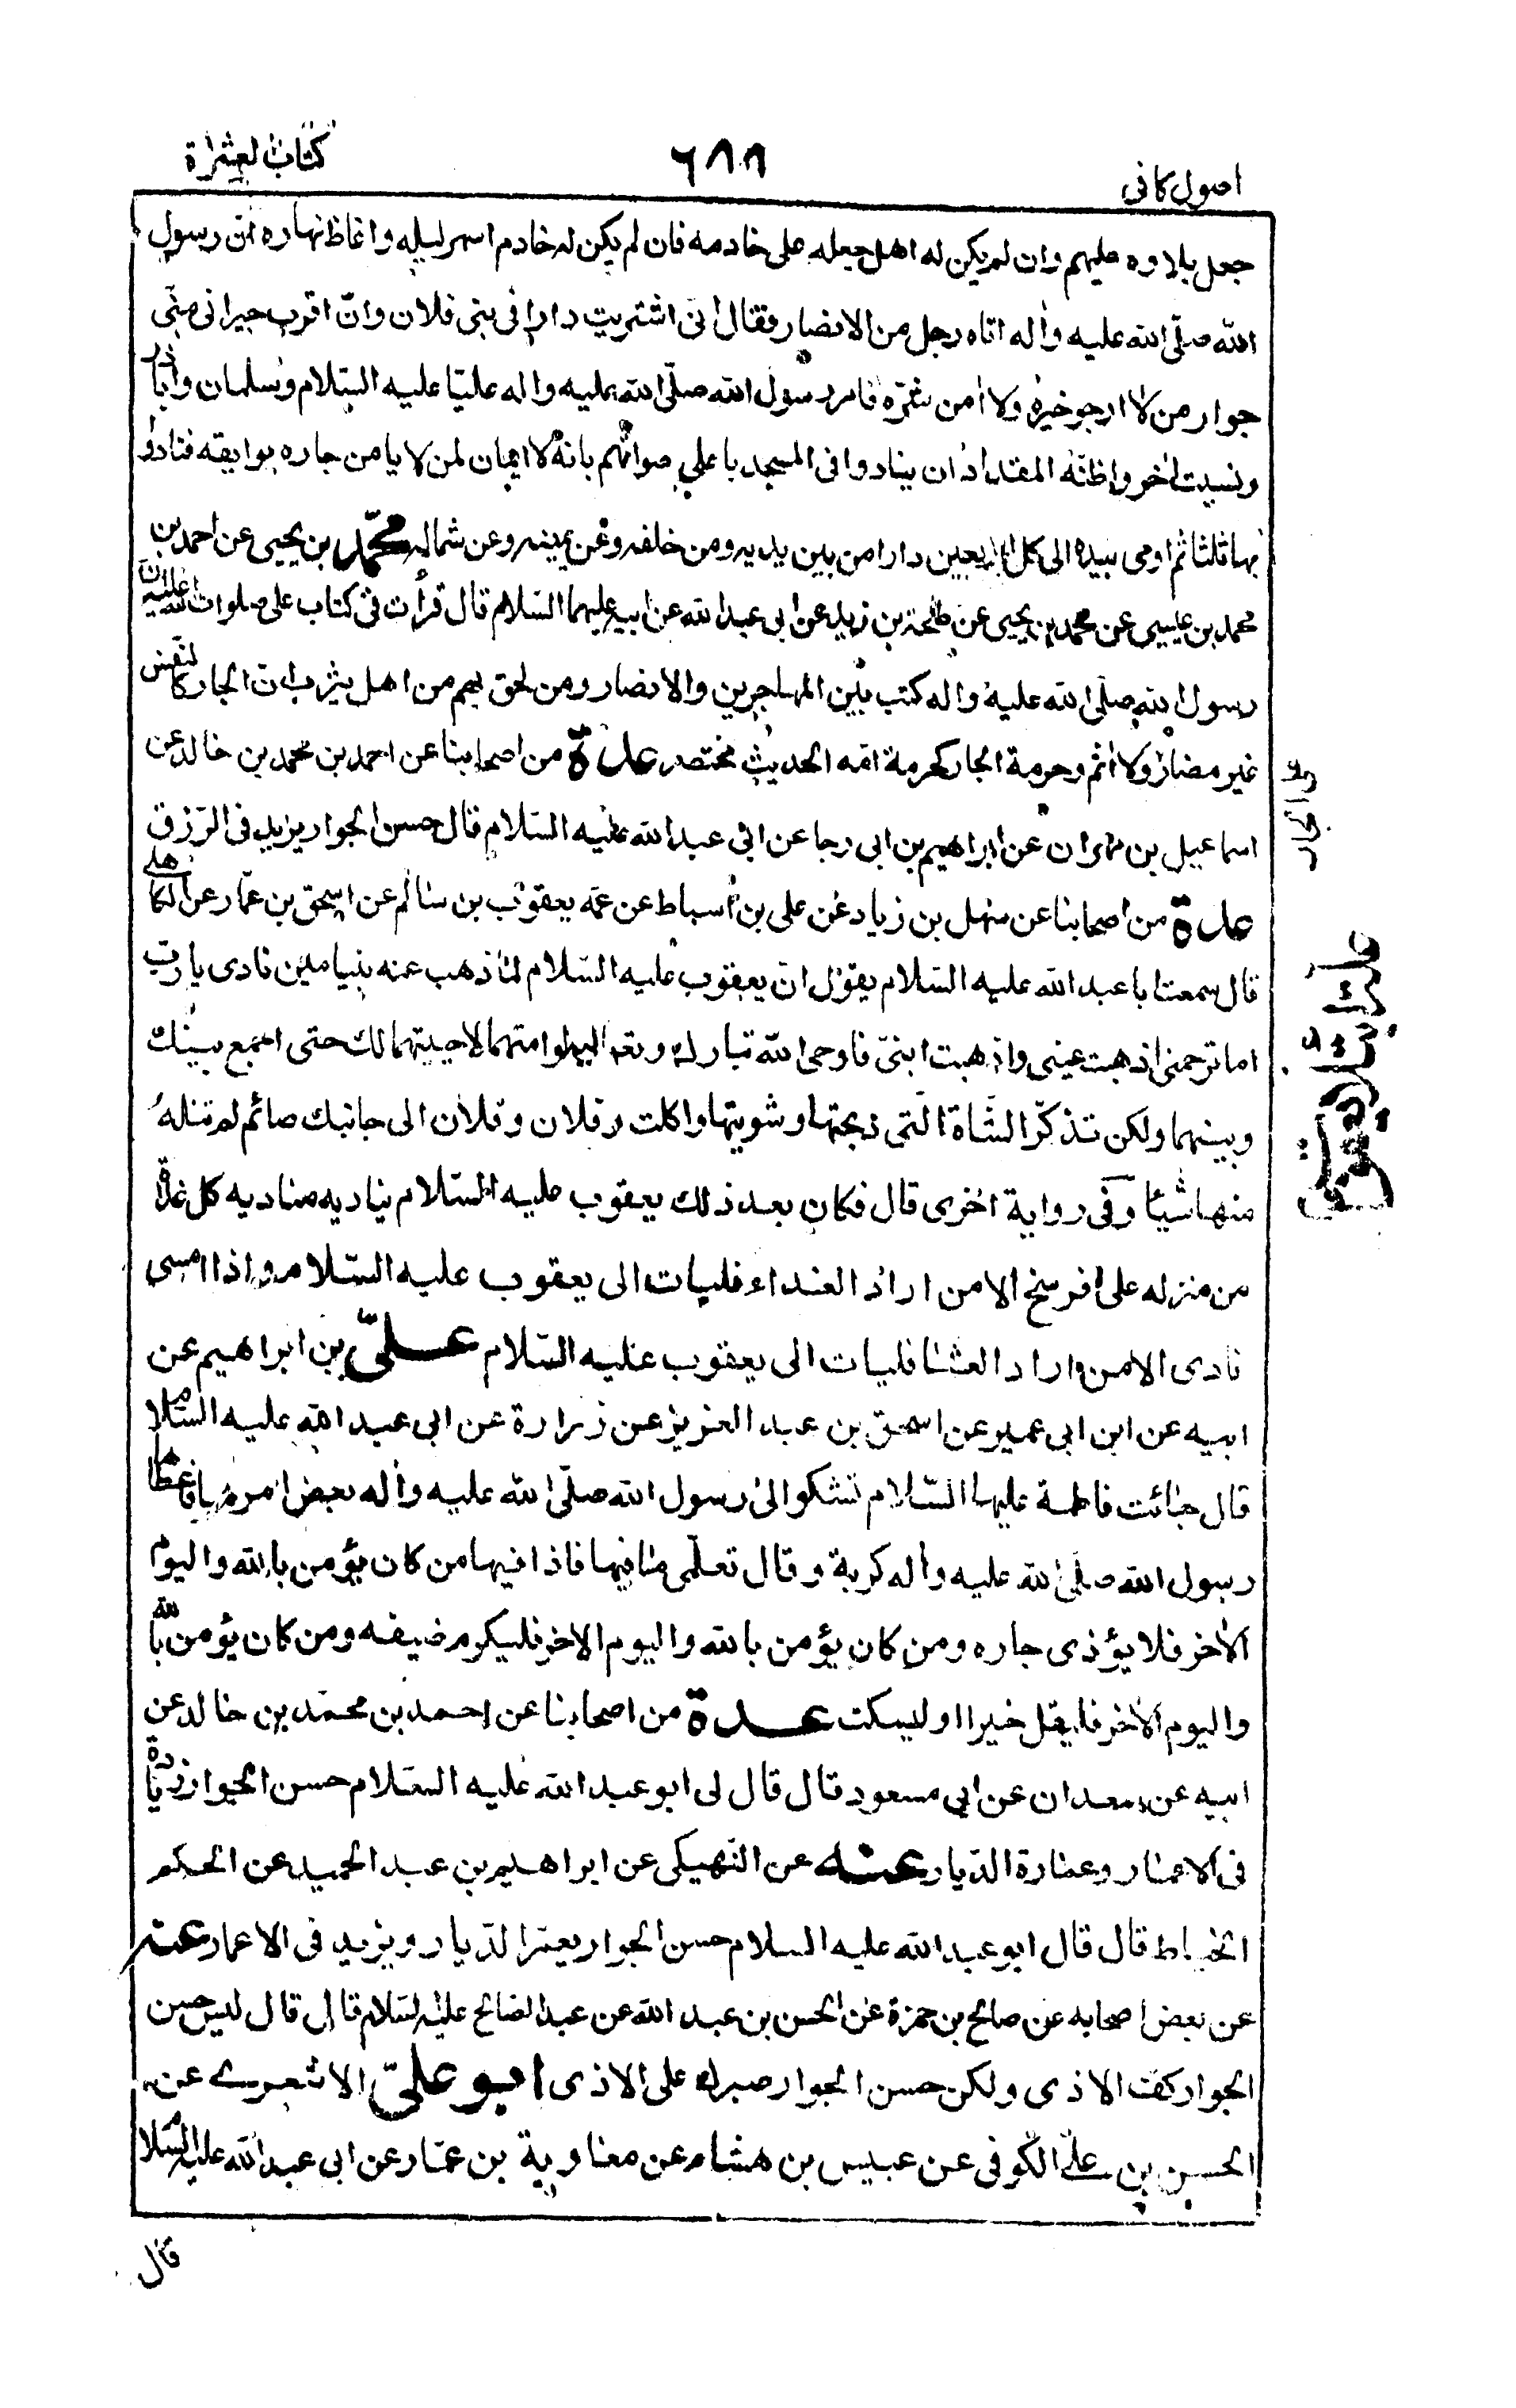 اصول كافى
٦٨٨
كتاب العشرة
جعل بلاوه عليهم وان لم يكن له اهل جعله على خادمه فان لم يكن له خادم اسهر ليله واغاظ نهاره انّ رسول
الله صلّى الله عليه واله اتاه رجل من الانصار فقال انّى اشتريت دارا فى بنى فلان وانّ اقرب جيرانى منّى
جوار من لا ارجو خيره ولا امن شرّه فامر رسول الله صلّى الله عليه واله عليّا عليه السّلام وسلمان وابا ذر
ونسيت اخر واظنّه المقداد ان ينادوا فى المسجد باعلى صواتهم بانّه لا ايمان لمن لا يامن جاره بوايقه فنادوا
بها ثلثا ثم اومى بيده الى كل اربعين دارا من بين يديه ومن خلفه وعن يمينه وعن شماله محمّد بن يحيى عن احمد بن
محمد بن عيسى عن محمد بن يحيى عن طلحة بن زيد عن ابى عبد الله عن ابيه عليهما السّلام قال قرأت فى كتاب على صلوات الله عليه ان
رسول الله صلّى الله عليه واله كتب بين المهاجرين والانصار ومن لحق بهم من اهل يثرب ان الجار كالنفس
غير مضارّ ولا اثم وحرمة الجار كحرمة امّه الحديث مختصر عدة من اصحابنا عن احمد بن محمد بن خالد عن
اسماعيل بن مهران عن ابراهيم بن ابى رجا عن ابى عبد الله عليه السّلام قال حسن الجوار يزيد فى الرّزق
عدة من اصحابنا عن سهل بن زياد عن على بن اسباط عن عمّه يعقوب بن سالم عن اسحق بن عمّار عن الكاهلى
قال سمعت ابا عبد الله عليه السّلام يقول انّ يعقوب عليه السّلام لمّا ذهب عنه بنيامين نادى يا ربّ
اما ترحمنى اذهبت عينى واذهبت ابنىّ فاوحى الله تبارك وتعالى اليه لو امتهما لاحييتهما لك حتى اجمع بينك
وبينهما ولكن تذكّر الشّاة الّتى ذبحتها وشويتها واكلت وفلان وفلان الى جانبك صائم لم تنله
منها شيئا وفى رواية اخرى قال فكان بعد ذلك يعقوب عليه السّلام يناديه مناديه كل غداة
من منزله على فرسخ الا من اراد الغداء فليات الى يعقوب عليه السّلام واذا امسى
نادى الا من اراد العشا فليات الى يعقوب عليه السّلام علىّ بن ابراهيم عن
ابيه عن ابن ابى عمير عن اسحق بن عبد العزيز عن زرارة عن ابى عبد الله عليه السّلام
قال جائت فاطمة عليها السّلام تشكو الى رسول الله صلّى الله عليه واله بعض امرها فاعطاها
رسول الله صلّى الله عليه واله كربة وقال تعلّمى ما فيها فاذا فيها من كان يؤمن بالله واليوم
الاخر فلا يؤذى جاره ومن كان يؤمن بالله واليوم الاخر فليكرم ضيفه ومن كان يؤمن بالله
واليوم الاخر فليقل خيرا او ليسكت عدة من اصحابنا عن احمد بن محمّد بن خالد عن
ابيه عن سعدان عن ابى مسعود قال قال لى ابو عبد الله عليه السّلام حسن الجوار زيادة
فى الاعمار وعمارة الدّيار عنه عن النّهيكى عن ابراهيم بن عبد الحميد عن الحكم
الخيّاط قال قال ابو عبد الله عليه السلام حسن الجوار يعمر الدّيار ويزيد فى الاعمار عنه
عن بعض اصحابه عن صالح بن حمزة عن الحسن بن عبد الله عن عبد الصّالح عليه السّلام قال قال ليس حسن
الجوار كفّ الاذى ولكن حسن الجوار صبرك على الاذى ابو علىّ الاشعرى عن
الحسن بن علىّ الكوفى عن عبيس بن هشام عن معاوية بن عمّار عن ابى عبد الله عليه السّلام
قال